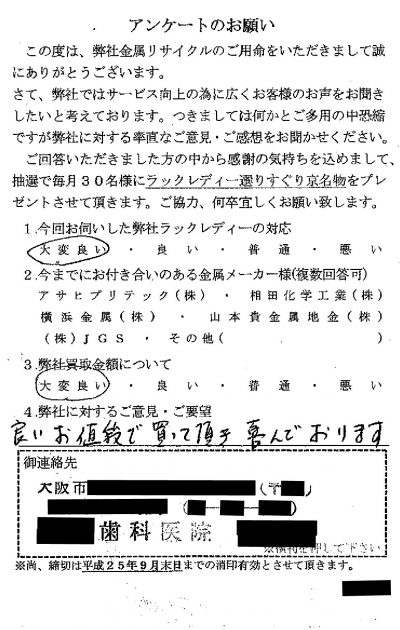 アンケートのお願い
この度は、弊社金属リサイクルのご用命をいただきまして誠
にありがとうございます。
さて、弊社ではサービス向上の為に広くお客様のお声をお聞き
したいと考えております。つきましては何かとご多用の中恐縮
ですが弊社に対する率直なご意見・ご感想をお聞かせください。
ご回答いただきました方の中から感謝の気持ちを込めまして、
抽選で毎月30名様にラックレディー選りすぐり京名物をプレ
ゼントさせて頂きます。ご協力、何卒宜しくお願い致します。
1.今回お伺いした弊社ラックレディーの対応
大変良い ・ 良い ・ 普通 ・ 悪い
2.今までにお付き合いのある金属メーカー様(複数回答可)
アサヒプリテック(株) ・ 相田化学工業(株)
横浜金属(株) ・ 山本貴金属地金(株)
(株)JGS ・ その他( )
3.弊社買取金額について
大変良い ・ 良い ・ 普通 ・ 悪い
4.弊社に対するご意見・ご要望
良いお値段で買って頂き喜んでおります
御連絡先
大阪市 (〒 )
( ー ー )
歯科医院
を押して下さい
※尚、締切は平成25年9月末日までの消印有効とさせて頂きます。